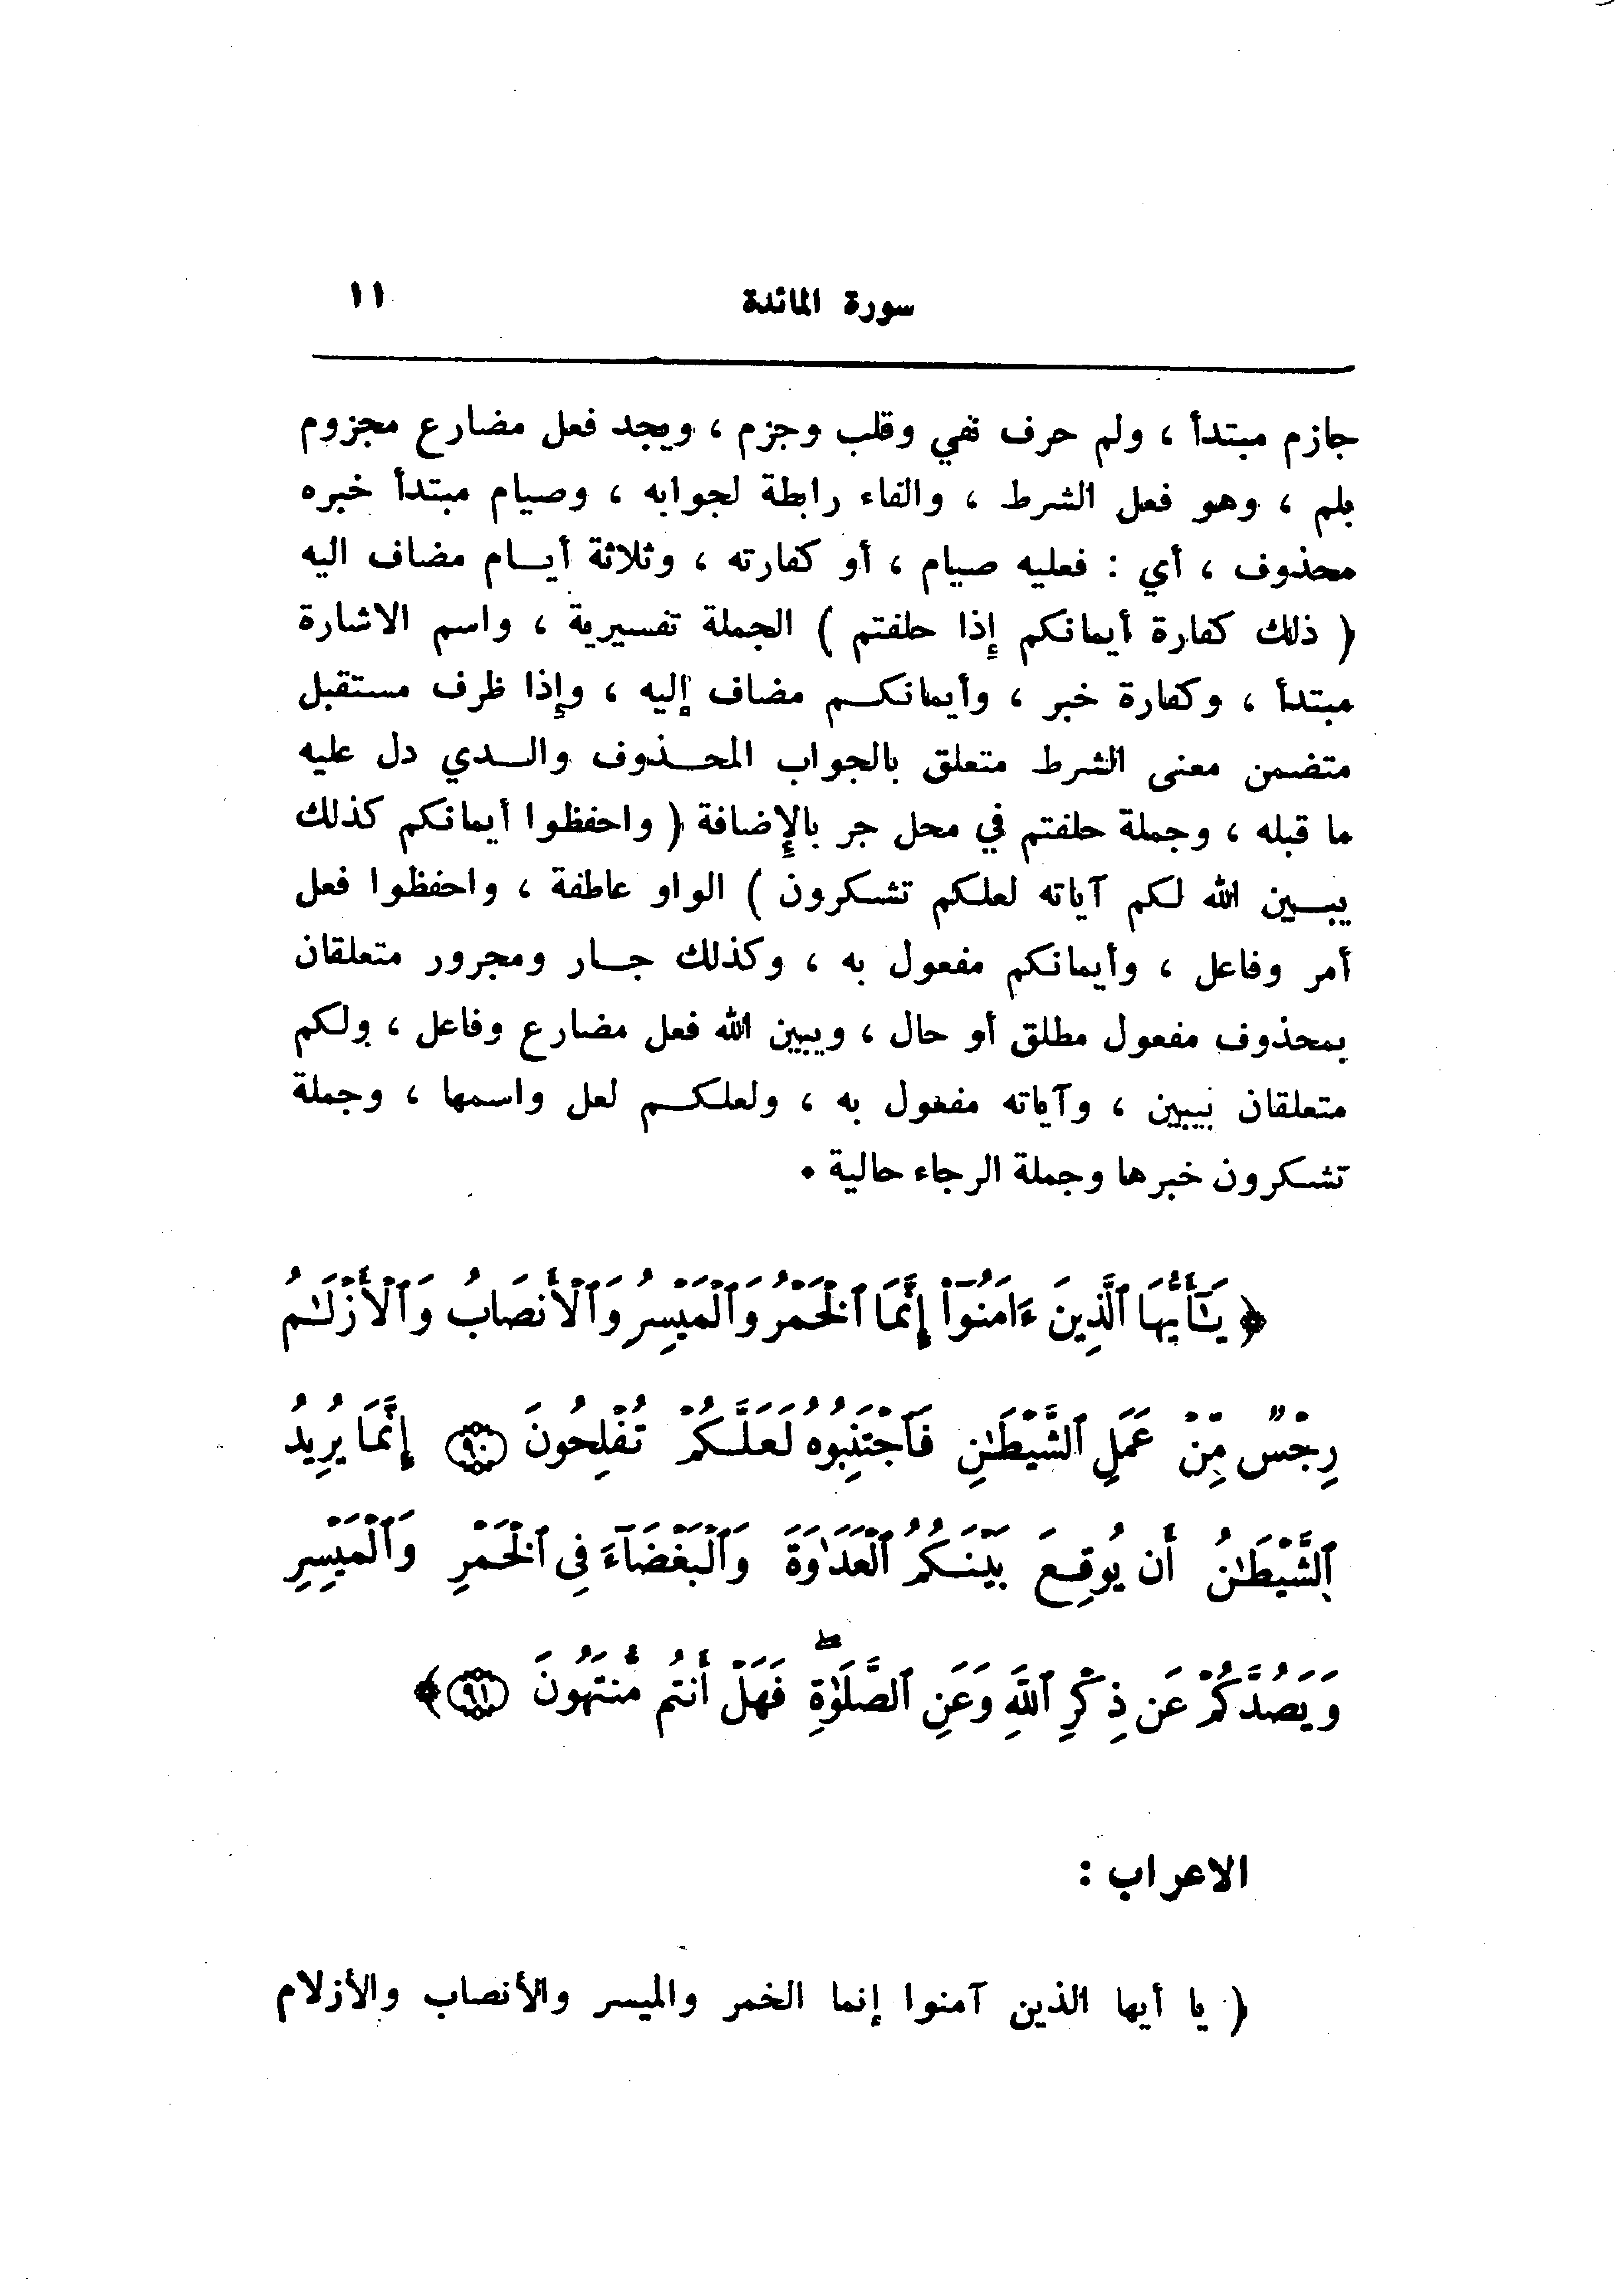 سورة المائدة ١١
جازم مبتدأ ، ولم حرف نفي وقلب وجزم ، ويجد فعل مضارع مجزوم
بلم ، وهو فعل الشرط ، والفاء رابطة لجوابه ، وصيام مبتدأ خبره
محذوف ، أي : فعليه صيام ، أو كفارته ، وثلاثة أيــام مضاف اليه
( ذلك كفارة أيمانكم إذا حلفتم ) الجملة تفسيرية ، واسم الاشارة
مبتدأ ، وكفارة خبر ، وأيمانكــم مضاف إليه ، وإذا ظرف مستقبل
متضمن معنى الشرط متعلق بالجواب المحــذوف والــدي دل عليه
ما قبله ، وجملة حلفتم في محل جر بالإضافة ( واحفظوا أيمانكم كذلك
يبــين الله لكم آياته لعلكم تشكرون ) الواو عاطفة ، واحفظوا فعل
أمر وفاعل ، وأيمانكم مفعول به ، وكذلك جــار ومجرور متعلقان
بمحذوف مفعول مطلق أو حال ، ويبين الله فعل مضارع وفاعل ، ولكم
متعلقان بيبين ، وآياته مفعول به ، ولعلكــم لعل واسمها ، وجملة
تشكرون خبرها وجملة الرجاء حالية .
﴿ يَـٰٓأَيُّهَا ٱلَّذِينَ ءَامَنُوٓا۟ إِنَّمَا ٱلْخَمْرُ وَٱلْمَيْسِرُ وَٱلْأَنصَابُ وَٱلْأَزْلَـٰمُ
رِجْسٌ مِّنْ عَمَلِ ٱلشَّيْطَـٰنِ فَٱجْتَنِبُوهُ لَعَلَّكُمْ تُفْلِحُونَ ﴿٩٠﴾ إِنَّمَا يُرِيدُ
ٱلشَّيْطَـٰنُ أَن يُوقِعَ بَيْنَكُمُ ٱلْعَدَٰوَةَ وَٱلْبَغْضَآءَ فِى ٱلْخَمْرِ وَٱلْمَيْسِرِ
وَيَصُدَّكُمْ عَن ذِكْرِ ٱللَّهِ وَعَنِ ٱلصَّلَوٰةِ ۖ فَهَلْ أَنتُم مُّنتَهُونَ ﴿٩١﴾ ﴾
الاعراب :
( يا أيها الذين آمنوا إنما الخمر والميسر والأنصاب والأزلام